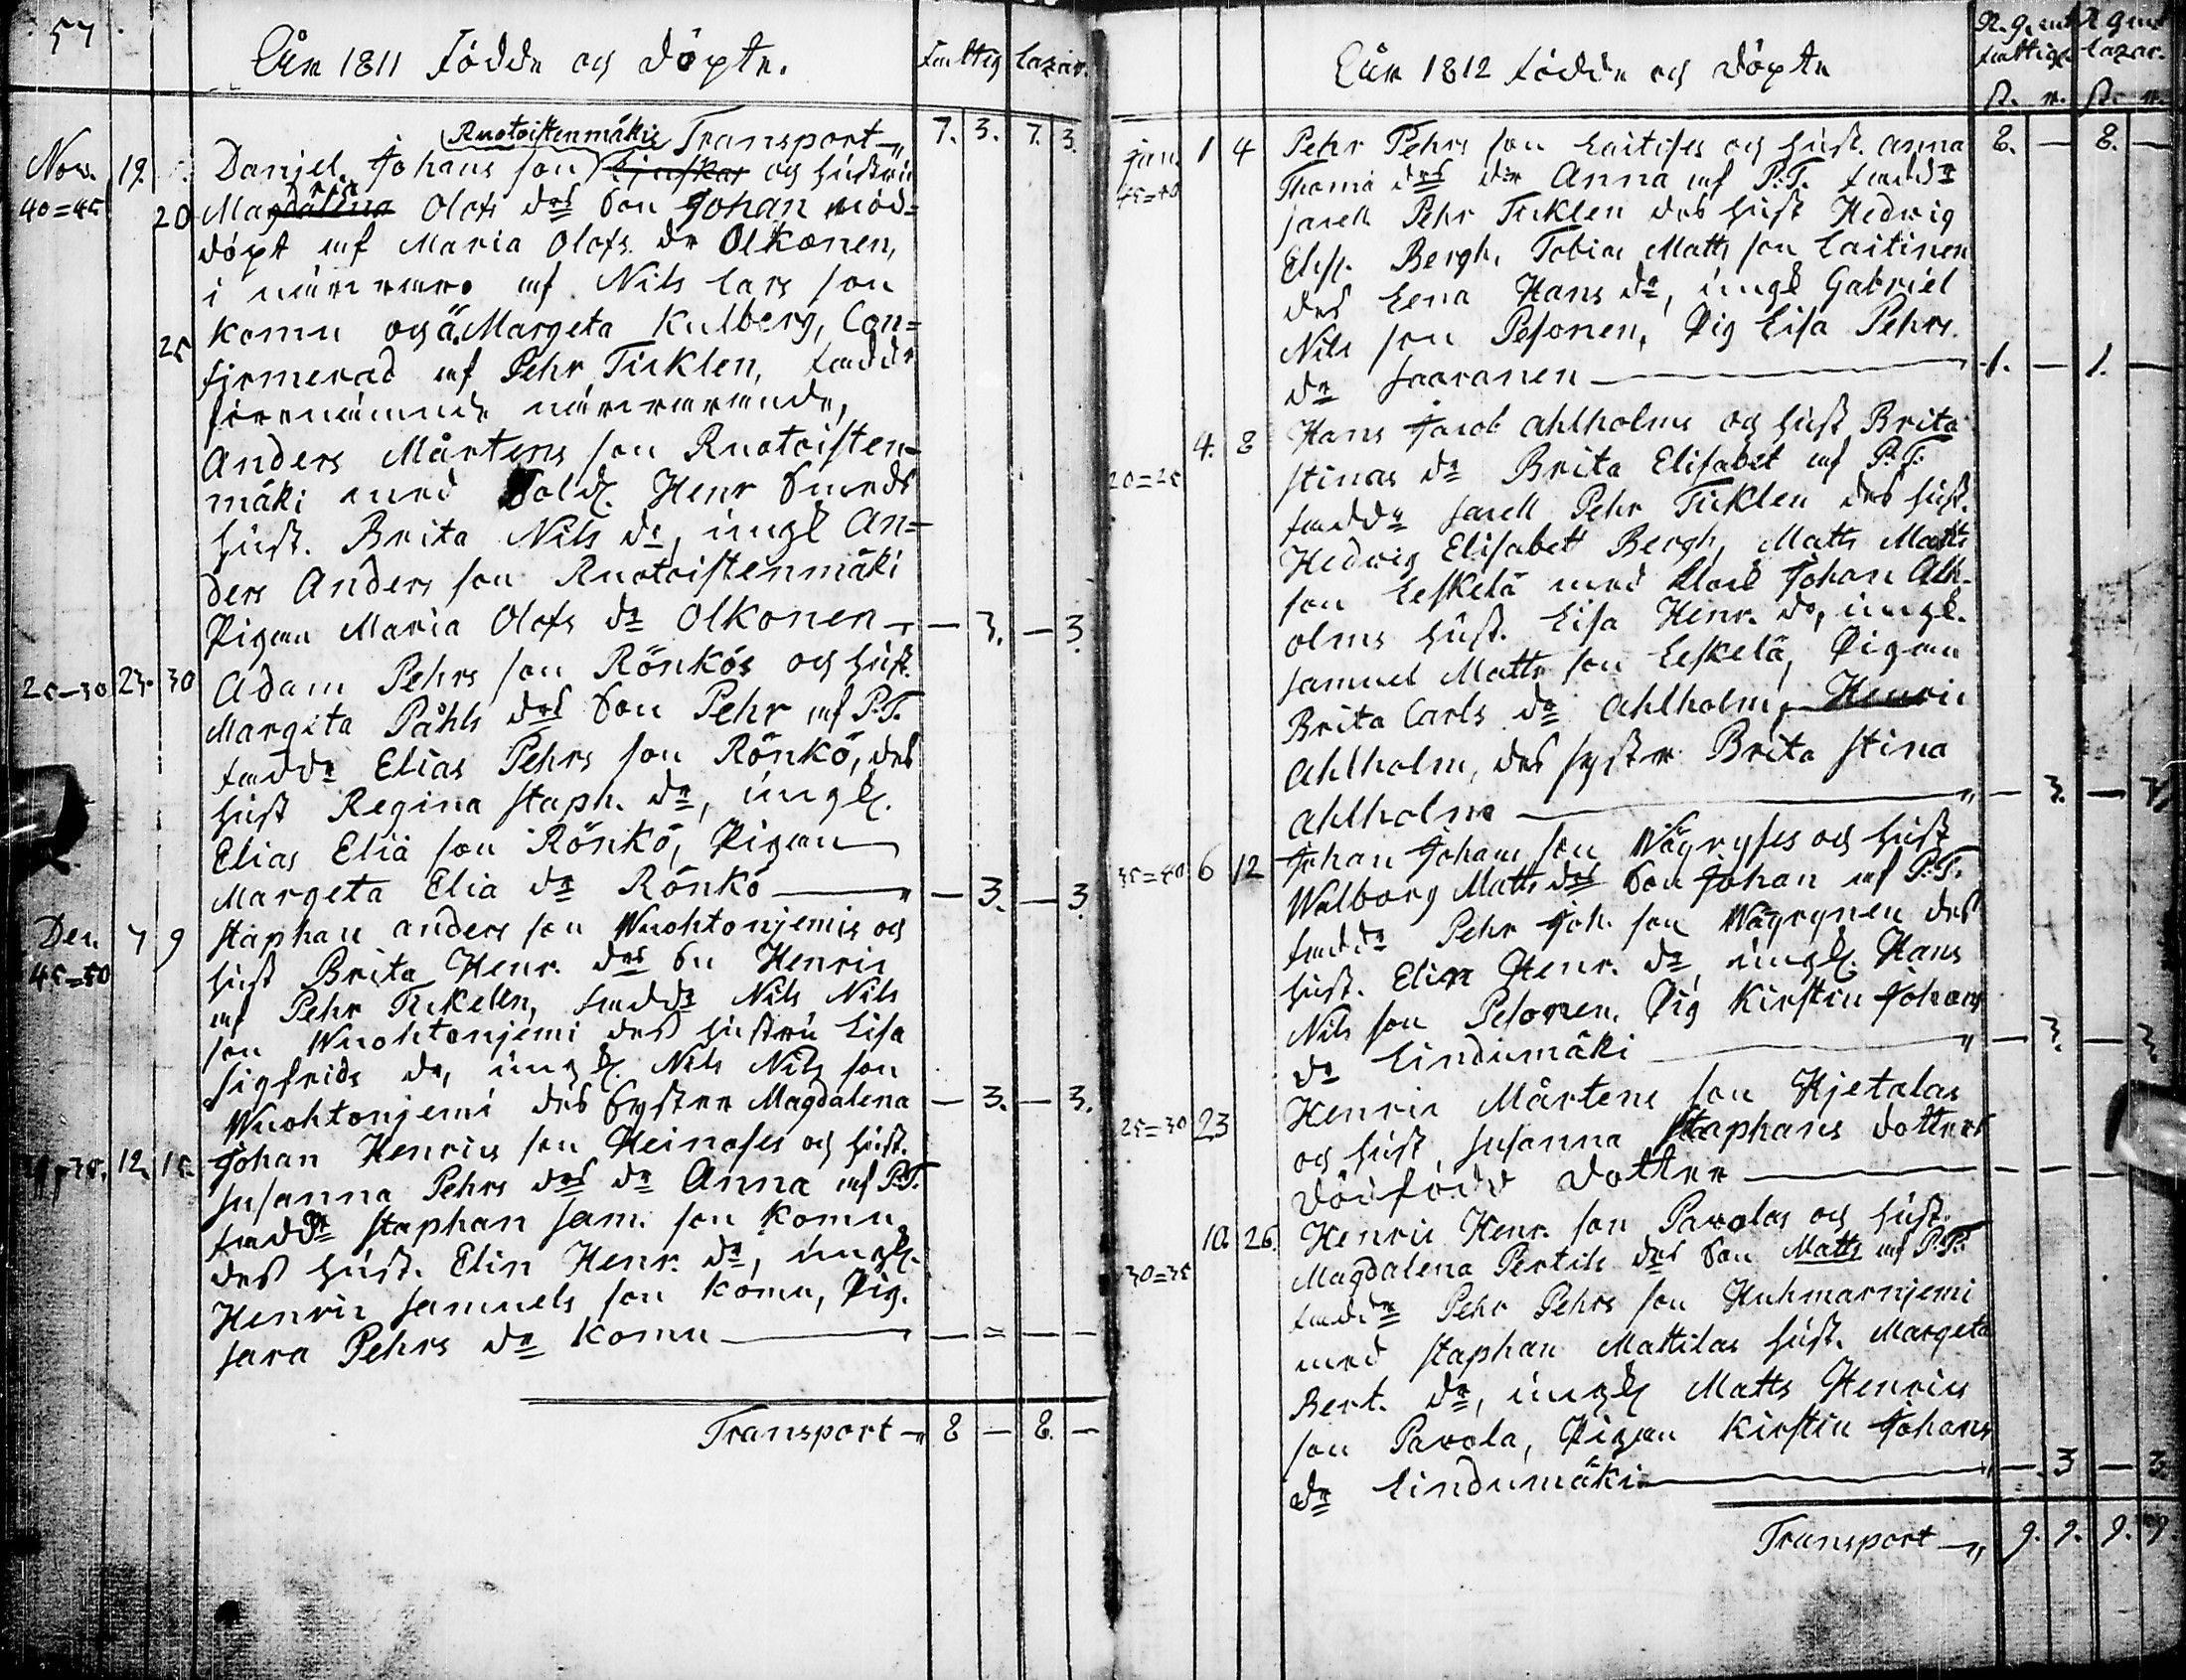 57
Åår 1811 Födde og Döpte. Fattig Lazar.
Ruotoistenmäkis Transport 7. 3. 7. 3.
Nov. 19. Danjel Johans son Ljuskas og hustru
40=45 20 Magdalena Olofs des Son Johan nöd=
döpt af Maria Olofs dr Olkonen,
i närvaro af Nils Lars son
25 Komu og ä. Margeta Kulberg, Con=
firmerad af Pehr Ticklen, faddr
förenämnde närvarande,
Anders Mårtens son Ruotoisten=
mäki med Sold. Henr Smeds
hust. Brita Nils dr, ungk An=
ders Anders son Ruotoistenmäki
Pigan Maria Olofs dr Olkonen — 3. — 3.
25-30 23. 30 Adam Pehrs son Rönkös og hust.
Margeta Påhls des Son Pehr af P.T.
faddr Elias Pehrs son Rönkö, des
hust Regina Staph. dr, ungk.
Elias Elia son Rönkö, Pigan
Margeta Elia dr Rönkö — 3. — 3.
Dec. 7 9 Staphan Anders son Wuohtonjemis og
45=50 hust Brita Henr. des Sn Henric
af Pehr Tickelen, faddr Nils Nils
son Wuohtonjemi des hustru Lisa
Sigfrids dr, ungk. Nils Nils son
Wuohtonjemi des Syster Magdalena — 3. — 3.
12. 15. Johan Henrics son Heinoses og hust.
Susanna Pehrs des dr Anna af P.T.
faddr Staphan Sam. son Komu
des hust. Elin Henr. dr, ungk.
Henric Samuels son Komu, Pig.
Sara Pehrs dr Komu — = — —
Transport 8 — 8. —
Åår 1812 Födde og Döpte
fattige Lazar.
Jan. 1 4 Pehr Pehrs son Laitises og hust. Anna 8. — 8. —
45=50 Thoma des dr Anna af P.T. faddr
Pehr Ticklen des hust Hedwig
Elis. Bergh, Tobias Matts son Laitinen
des Lena Hans dr, ungk Gabriel
Nils son Pesonen, Pig Lisa Pehrs
dr Saaranen — 1. — 1. —
4. 8 Hans Jacob Ahlholms og hust Brita
20=25 Stinas dr Brita Elisabet af P.T.
faddr Pehr Ticklen des hust.
Hedwig Elisabet Bergh, Matts Matts
son Leskelä med Johan Alh=
olms hust. Lisa Henr. dr, ungk.
Samuel Matts son Leskelä, Pigan
Brita Carls dr Ahlholm, Henric
Ahlholm, des syster Brita Stina
Ahlholm — 3. — 3.
35=40 6 12 Johan Johans son Wägryses og hust
Walborg Matts des Son Johan af P.T.
faddr Pehr Joh. son Wägrynen des
hust. Elin Henr. dr, ungk. Hans
Nils son Pesonen, Pig Kirstin Johans
dr Lindumäki — 3. — 3.
25=30 23 Henric Mårtens son Hjetalas
og hust Susanna Staphans dotters
Dödfödd Dotter — — — —
10. 26. Henric Henr. son Pavolas og hust.
30=35 Magdalena Pertils des Son Matts af P.T.
faddr Pehr Pehrs son Huhmarnjemi
med Staphan Mattilas hust. Margeta
Bert. dr, ungk Matts Henrics
son Pavola, Pigan Kirstin Johans
dr Lindumäki — 3 — 3.
Transport 9. 9. 9. 9.